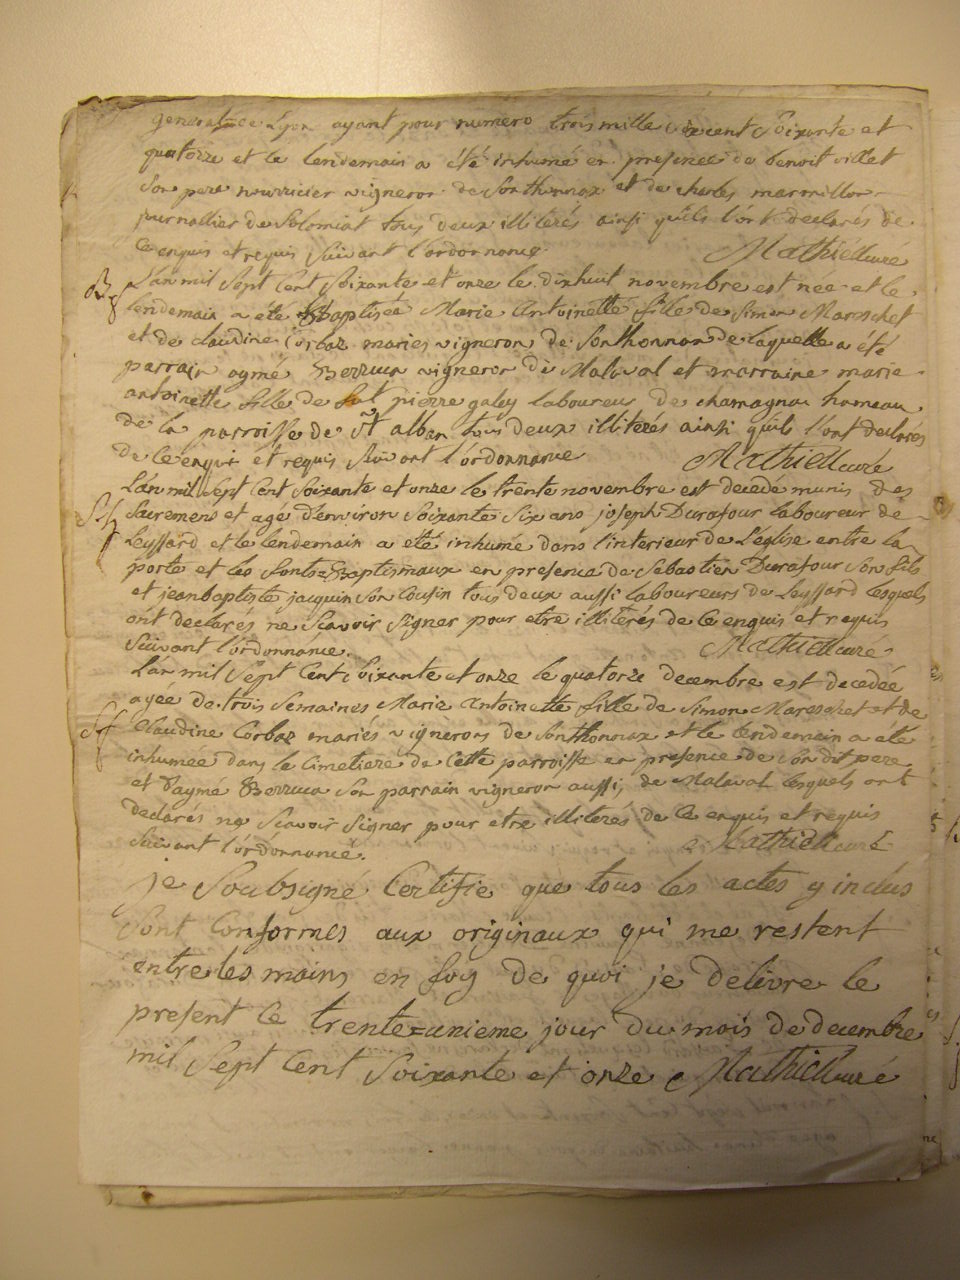 general de Lyon ayant pour numero trois mille six cent soixante et
quatorze et le lendemain a été inhumé en presence de benoit villet
son pere nourricier vigneron de Sonthonnax et de charles marmillon
journallier de Solomiat tous deux illiterés ainsi qu'ils l'ont declarés de
ce enquis et requis suivant l'ordonnance. Mathieu curé
Bp
L'an mil sept cent soixante et onze le dixhuit novembre est née et le
lendemain a été Baptisée Marie Antoinette fille de Simon Mareschet
et de claudine Corbaz mariés vignerons de Sonthonnax de laquelle a été
parrain aymé Berrucu vigneron de Malaval et marraine marie
antoinette fille de pierre galey laboureur de chamagnat hameau
de la parroisse de st alban tous deux illiterés ainsi qu'ils l'ont declarés
de ce enquis et requis suivant l'ordonnance Mathieu curé
Sp
L'an mil sept cent soixante et onze le trente novembre est decedé munis des
sacremens et agé d'environ soixante six ans joseph Durafour laboureur de
Leyssard et le lendemain a eté inhumé dans l'interieur de l'église entre la
porte et les fonts Baptismaux en presence de Sebastien Durafour son fils
et jeanbaptiste jacquin son cousin tous deux aussi laboureurs de Leyssard lesquels
ont declarés ne scavoir signer pour etre illiterés de ce enquis et requis
suivant l'ordonnance. Mathieu curé
L'an mil sept cent soixante et onze le quatorze decembre est decedée
Sp
agée de trois semaines Marie Antoinette fille de Simon Mareschet et de
Claudine Corbaz mariés vignerons de Sonthonnax et le lendemain a été
inhumée dans le cimetiere de cette parroisse en presence de son dit pere
et d'aymé Berrucu son parrain vigneron aussi de Malaval lesquels ont
declarés ne scavoir signer pour etre illiterés de ce enquis et requis
suivant l'ordonnance. Mathieu curé
je soubsigné certifie que tous les actes y inclus
sont conformes aux originaux qui me restent
entre les mains en foy de quoi je delivre le
present ce trente=unieme jour du mois de decembre
mil sept cent soixante et onze Mathieu curé